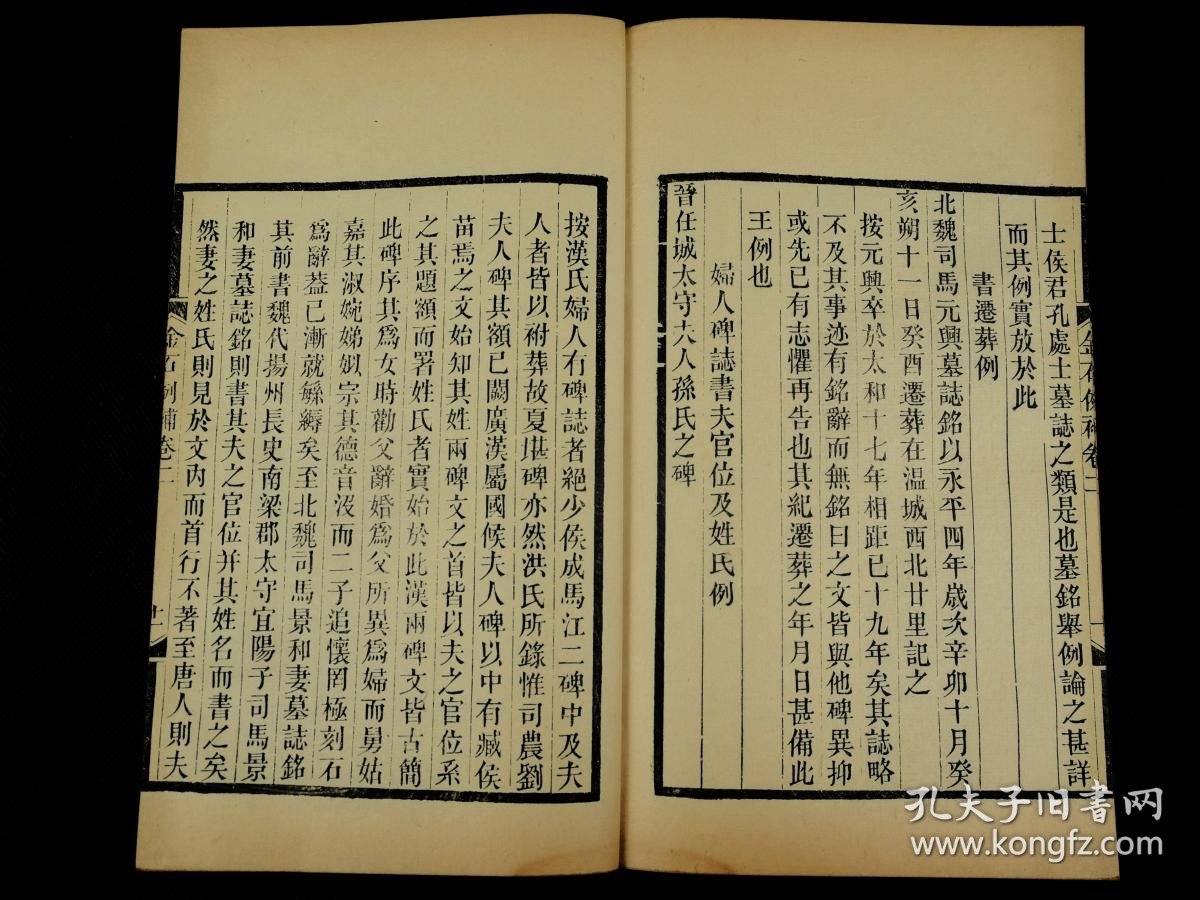 士侯君孔處士墓誌之類是也墓銘舉例論之甚詳
而其例實放於此
書遷葬例
北魏司馬元興墓誌銘以永平四年歲次辛卯十月癸
亥朔十一日癸酉遷葬在温城西北廿里記之
按元興卒於太和十七年相距已十九年矣其誌略
不及其事迹有銘辭而無銘曰之文皆與他碑異抑
或先已有志懼再告也其紀遷葬之年月日甚備此
王例也
婦人碑誌書夫官位及姓氏例
晉任城太守夫人孫氏之碑
按漢氏婦人有碑誌者絕少侯成馬江二碑中及夫
人者皆以祔葬故夏堪碑亦然洪氏所錄惟司農劉
夫人碑其額已闕廣漢屬國候夫人碑以中有臧侯
苗焉之文始知其姓兩碑文之首皆以夫之官位系
之其題額而署姓氏者實始於此漢兩碑文皆古簡
此碑序其爲女時勸父辭婚爲父所異爲婦而舅姑
嘉其淑婉娣姒宗其德音沒而二子追懷罔極刻石
爲辭葢已漸就縣縟矣至北魏司馬景和妻墓誌銘
其前書魏代揚州長史南梁郡太守宜陽子司馬景
和妻墓誌銘則書其夫之官位并其姓名而書之矣
然妻之姓氏則見於文內而首行不著至唐人則夫
金石例補卷二
十一
孔夫子旧书网
www.kongfz.com